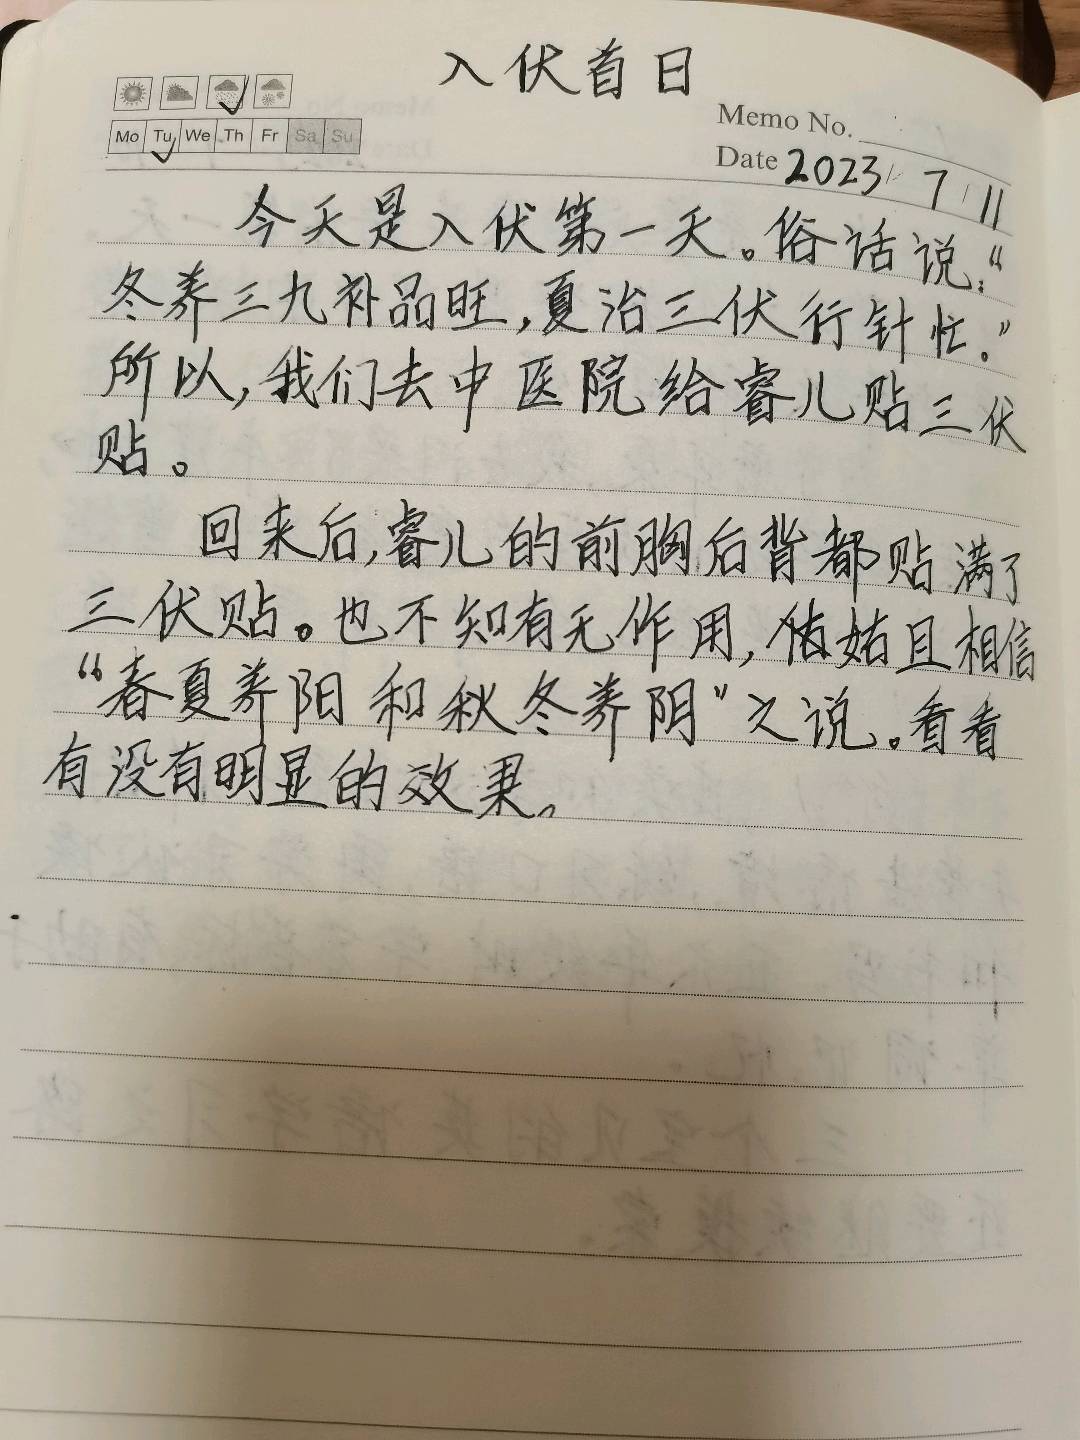 入伏首日
Mo Tu We Th Fr Sa Su
Memo No.
Date 2023/7/11
今天是入伏第一天。俗话说:“
冬养三九补品旺,夏治三伏行针忙。”
所以,我们去中医院给睿儿贴三伏
贴。
回来后,睿儿的前胸后背都贴满了
三伏贴。也不知有无作用,估姑且相信
“春夏养阳和秋冬养阴”之说。看看
有没有明显的效果。